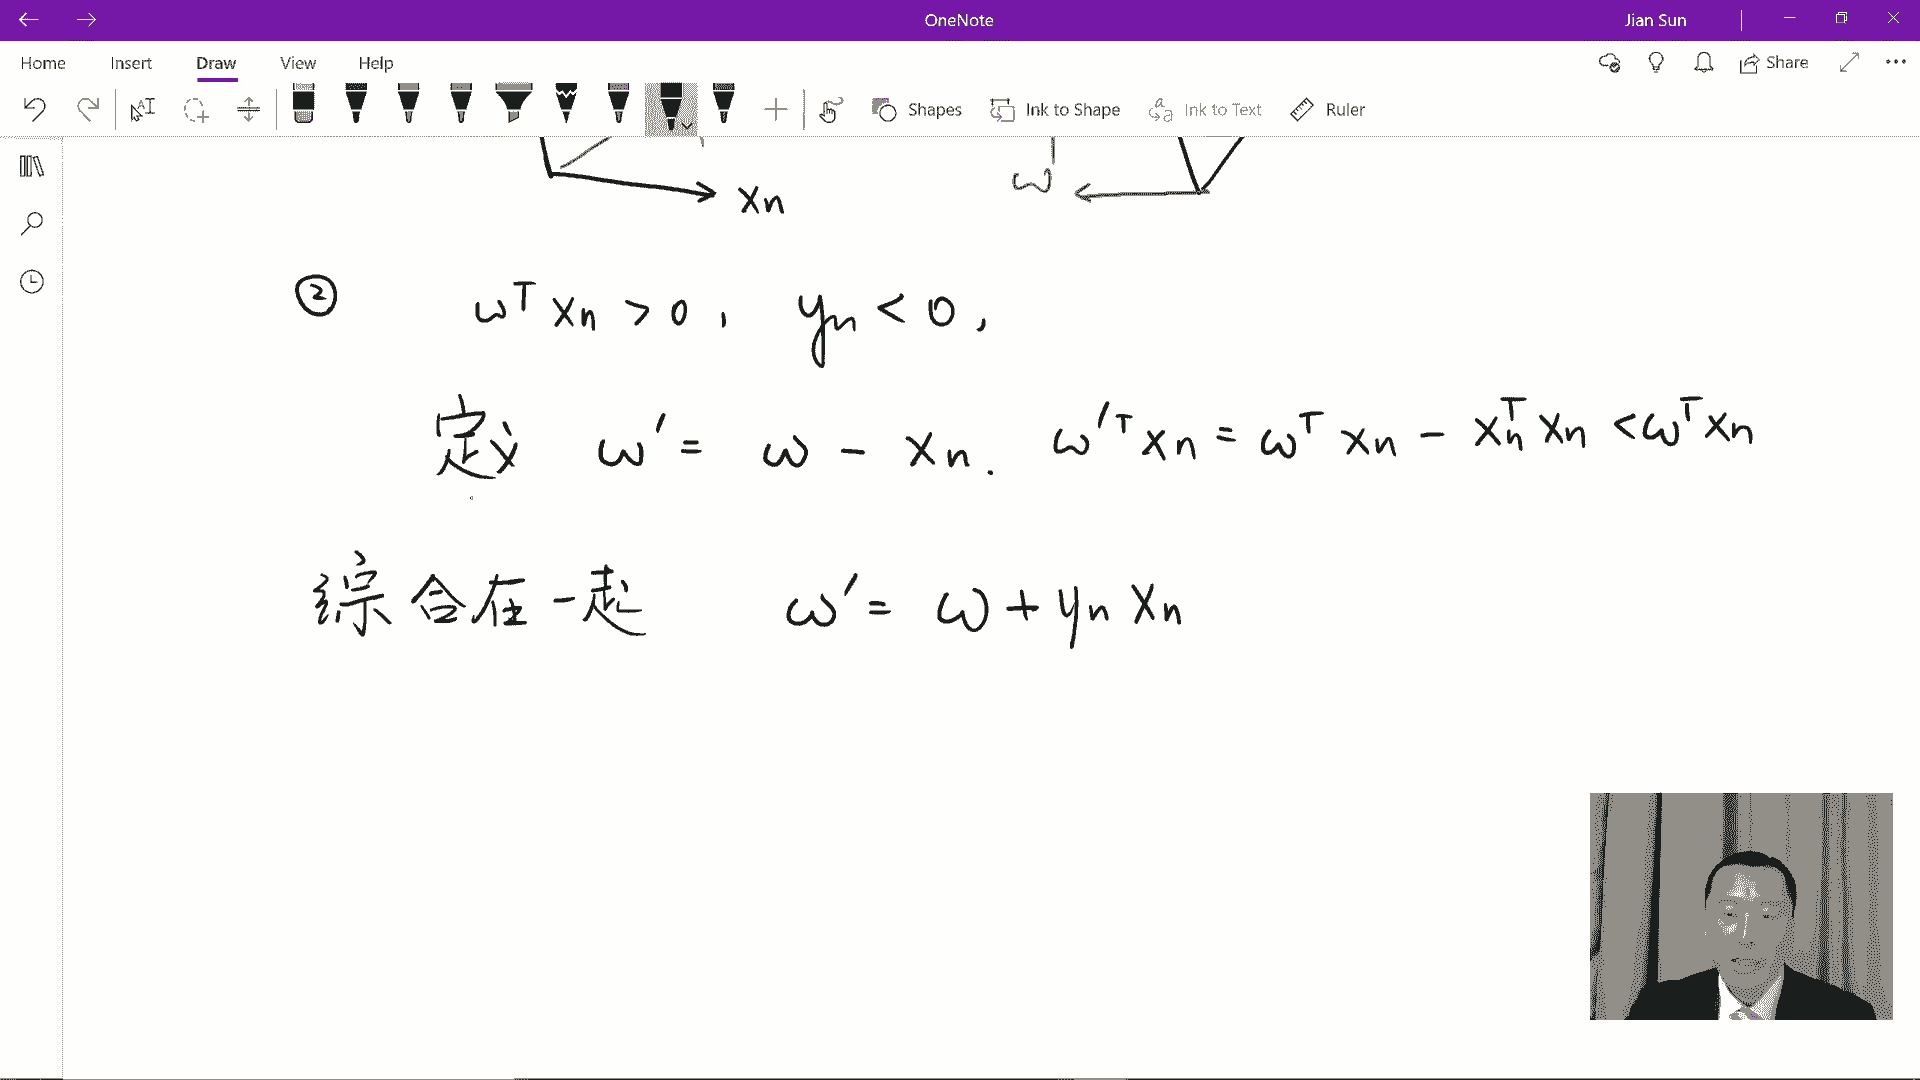 OneNote
Jian Sun
Home Insert Draw View Help
Share
Shapes Ink to Shape Ink to Text Ruler
xn
ω
② ω^T xn > 0, yn < 0,
定义 ω' = ω - xn. ω'^T xn = ω^T xn - xn^T xn < ω^T xn
综合在一起 ω' = ω + yn xn